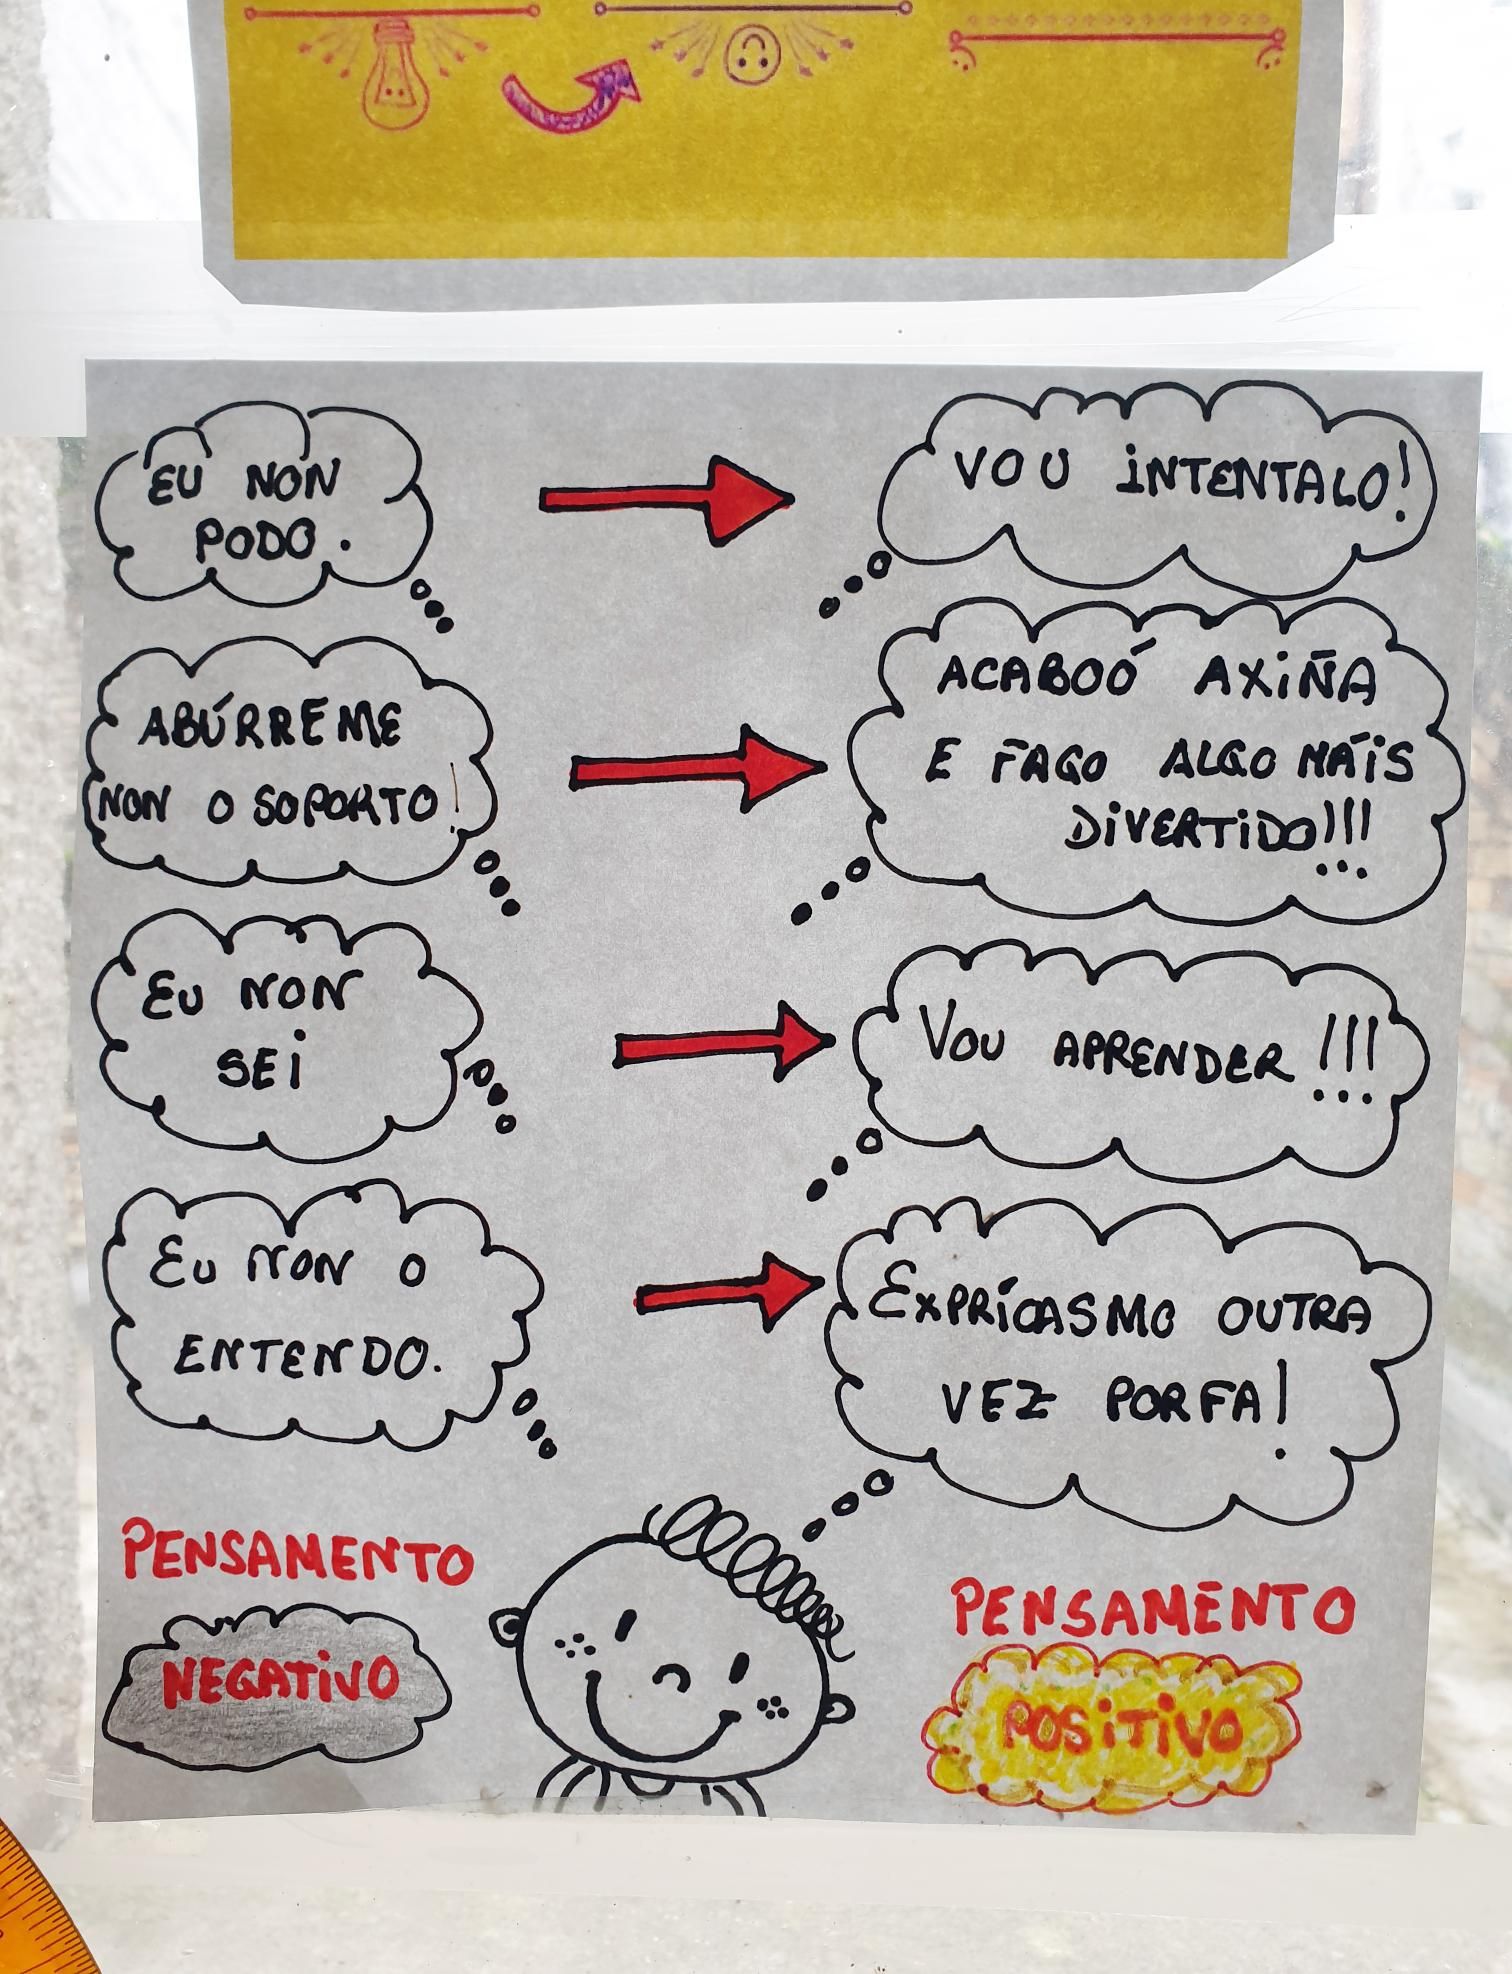 EU NON
PODO.
VOU INTENTALO!
ABÚRREME
NON O SOPORTO!
ACABOÓ AXIÑA
E FAGO ALGO MÁIS
DIVERTIDO!!!
EU NON
SEI
VOU APRENDER!!!
EU NON O
ENTENDO.
EXPRÍCASMO OUTRA
VEZ PORFA!
PENSAMENTO
NEGATIVO
PENSAMENTO
POSITIVO